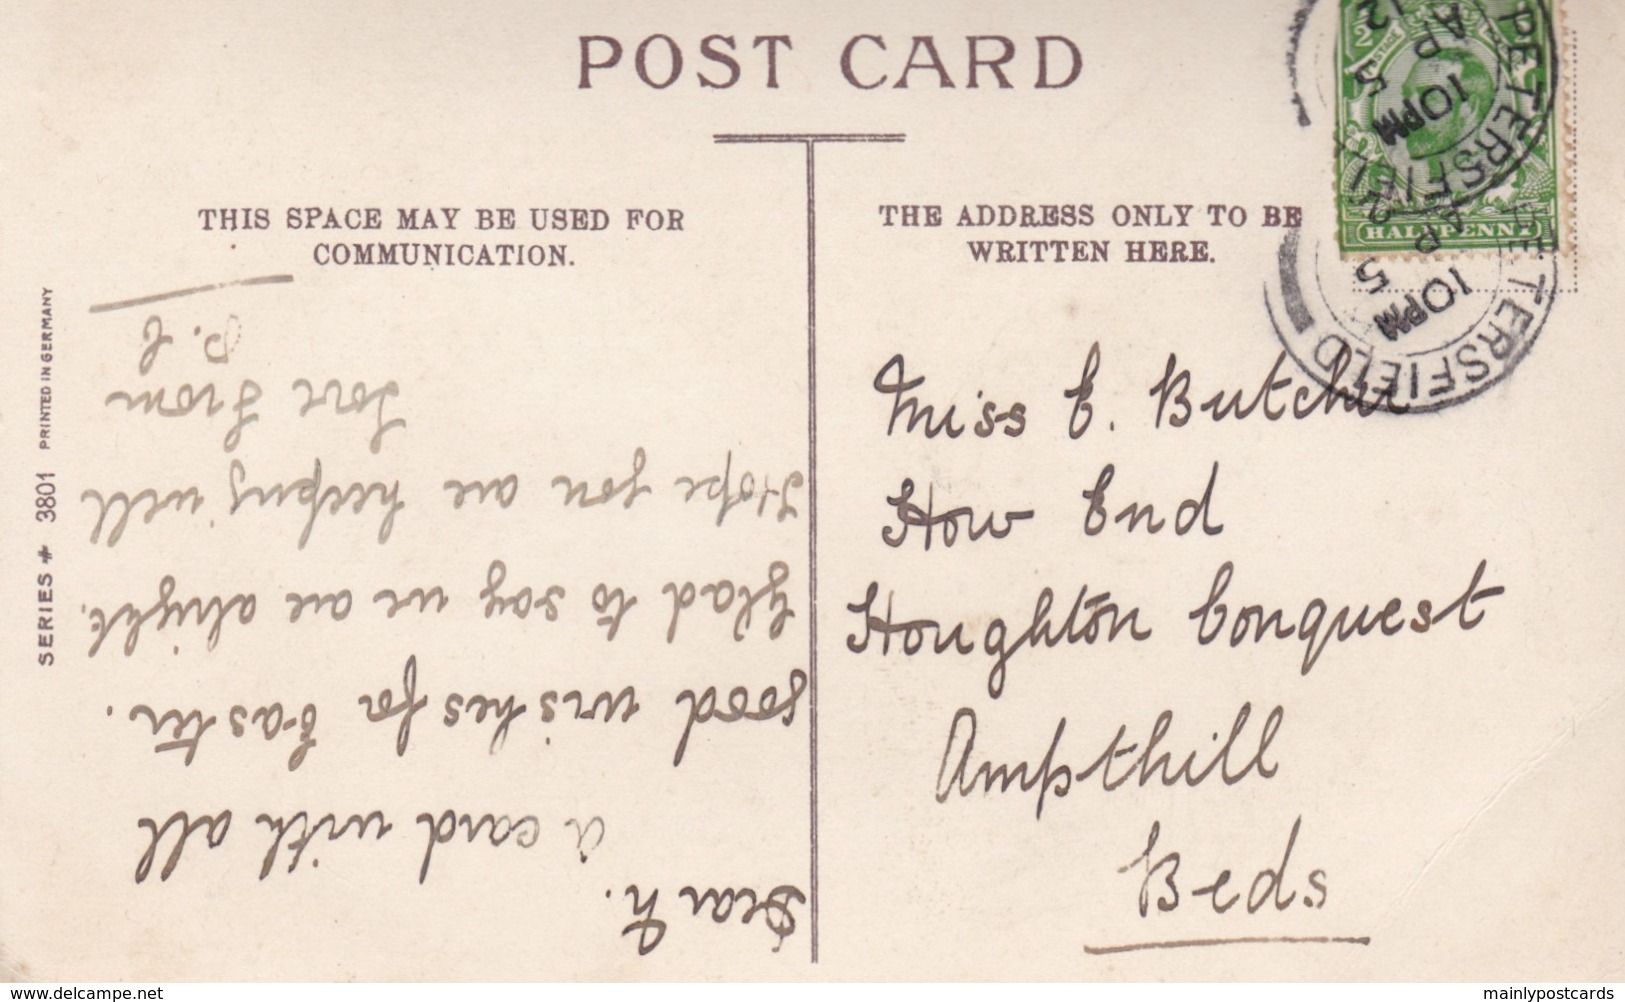 POST CARD
THIS SPACE MAY BE USED FOR
COMMUNICATION.
THE ADDRESS ONLY TO BE
WRITTEN HERE.
SERIES # 3801 PRINTED IN GERMANY
a card with all
good wishes for Easter.
Glad to say we are alright.
Hope you are keeping well
Love from
Miss E. Butcher
How End
Houghton Conquest
Ampthill
Beds
HALFPENNY
PETERSFIELD
10 PM
AP 5
12
PETERSFIELD
10 PM
AP 5
www.delcampe.net
mainlypostcards